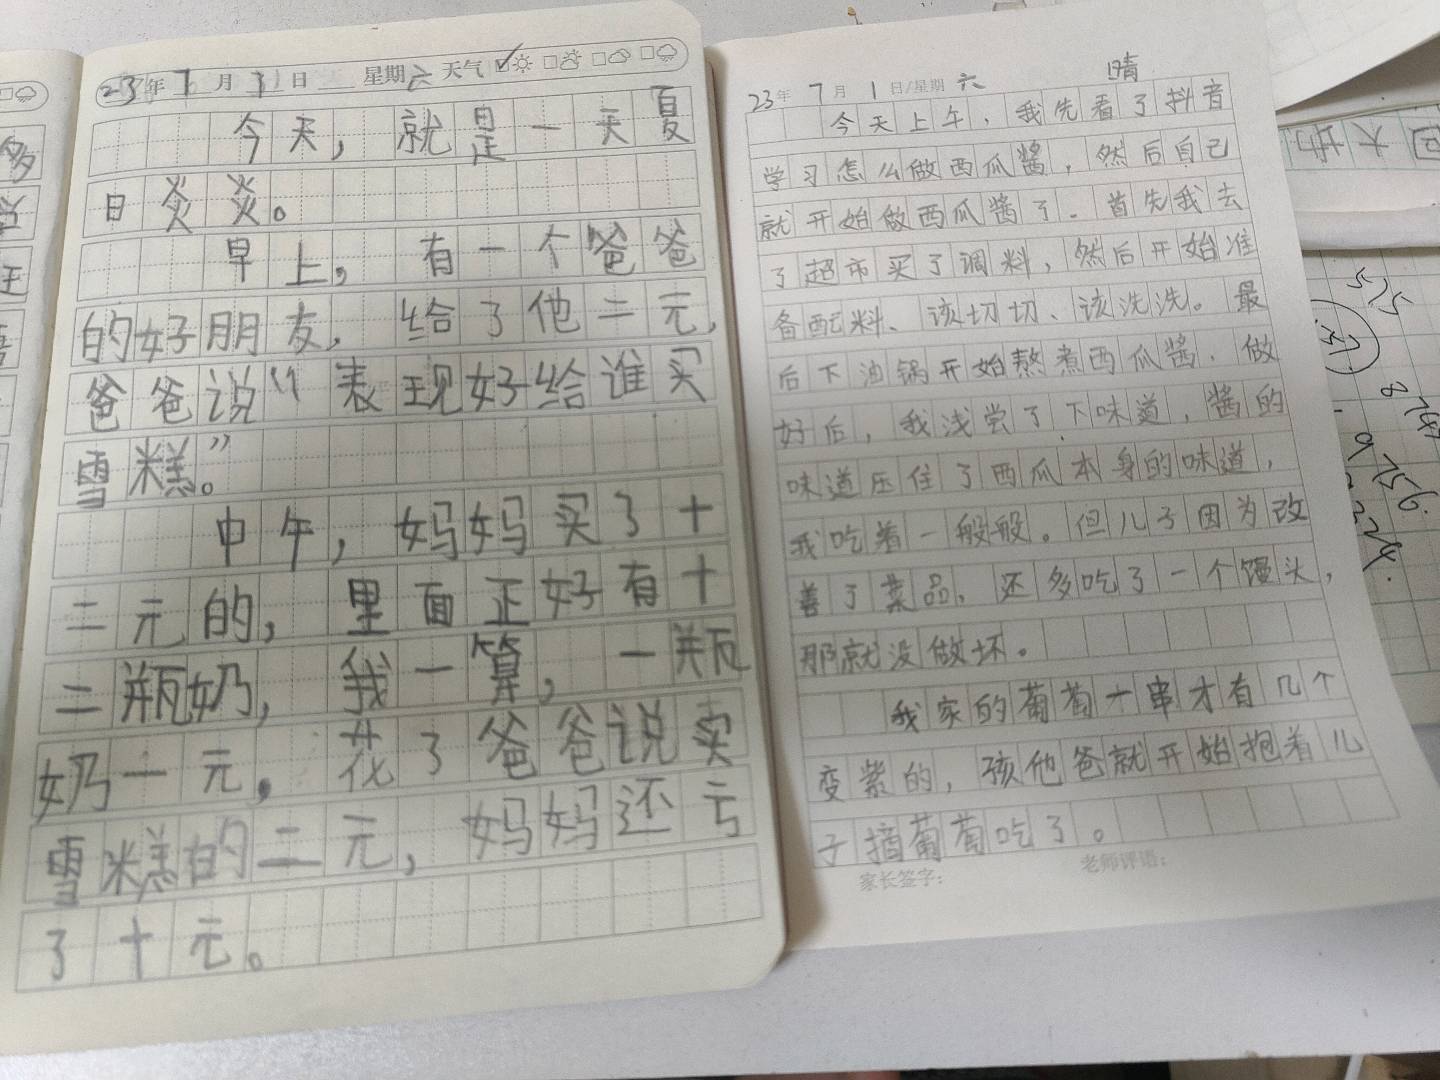 23年7月1日 星期六 天气
今天,就是一天夏
日炎炎。
早上,有一个爸爸
的好朋友,给了他二元,
爸爸说“表现好给谁买
雪糕。”
中午,妈妈买了十
二元的,里面正好有十
二瓶奶,我一算,一瓶
奶一元。花了爸爸说买
雪糕的二元,妈妈还亏
了十元。
23年7月1日/星期六 晴
今天上午,我先看了抖音
学习怎么做西瓜酱,然后自己
就开始做西瓜酱了。首先我去
了超市买了调料,然后开始准
备配料、该切切、该洗洗。最
后下油锅开始熬煮西瓜酱。做
好后,我浅尝了下味道,酱的
味道压住了西瓜本身的味道,
我吃着一般般。但儿子因为改
善了菜品,还多吃了一个馒头,
那就没做坏。
我家的葡萄一串才有几个
变紫的,孩他爸就开始抱着儿
子摘葡萄吃了。
家长签字: 老师评语: